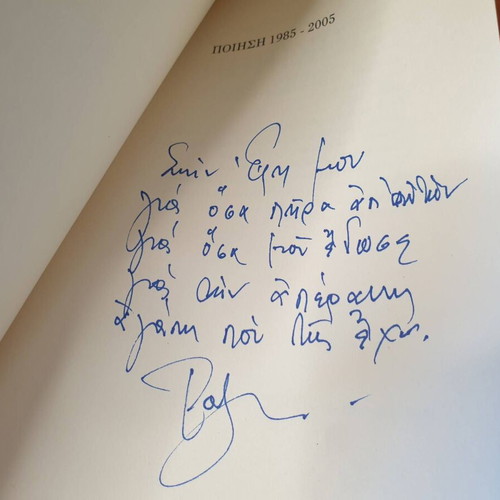 ΠΟΙΗΣΗ 1985 - 2005
Στὴν Ἔφη μου
γιὰ ὅσα πῆρα ἀπ' αὐτὴν
γιὰ ὅσα μοῦ ἔδωσε
γιὰ τὴν ἀπέραντη
ἀγάπη ποὺ τῆς ἔχω.